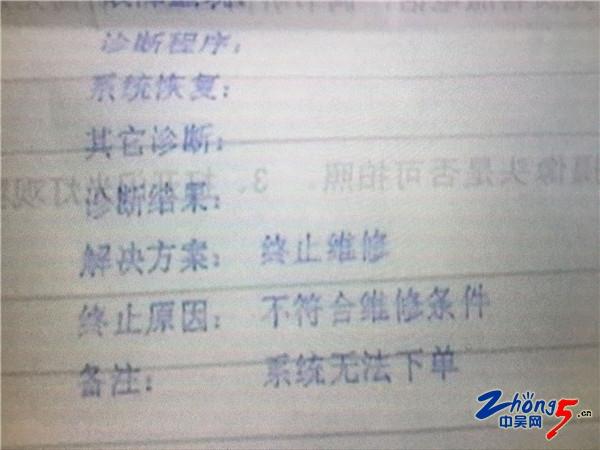 诊断程序：
系统恢复：
其它诊断：
诊断结果：
解决方案： 终止维修
终止原因： 不符合维修条件
备注： 系统无法下单
zhong5.cn
中吴网